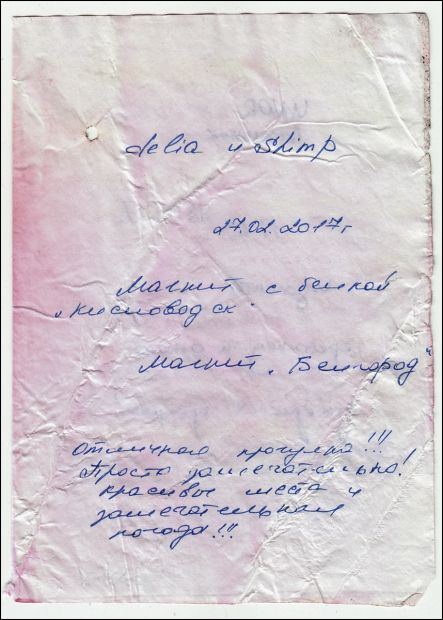 delia и Shimp
27.02.2017г
Магнит с белкой
"Кисловодск"
Магнит "Белгород"
Отличная прогулка!!!
Просто замечательно!
Красивые места и
замечательная
погода!!!